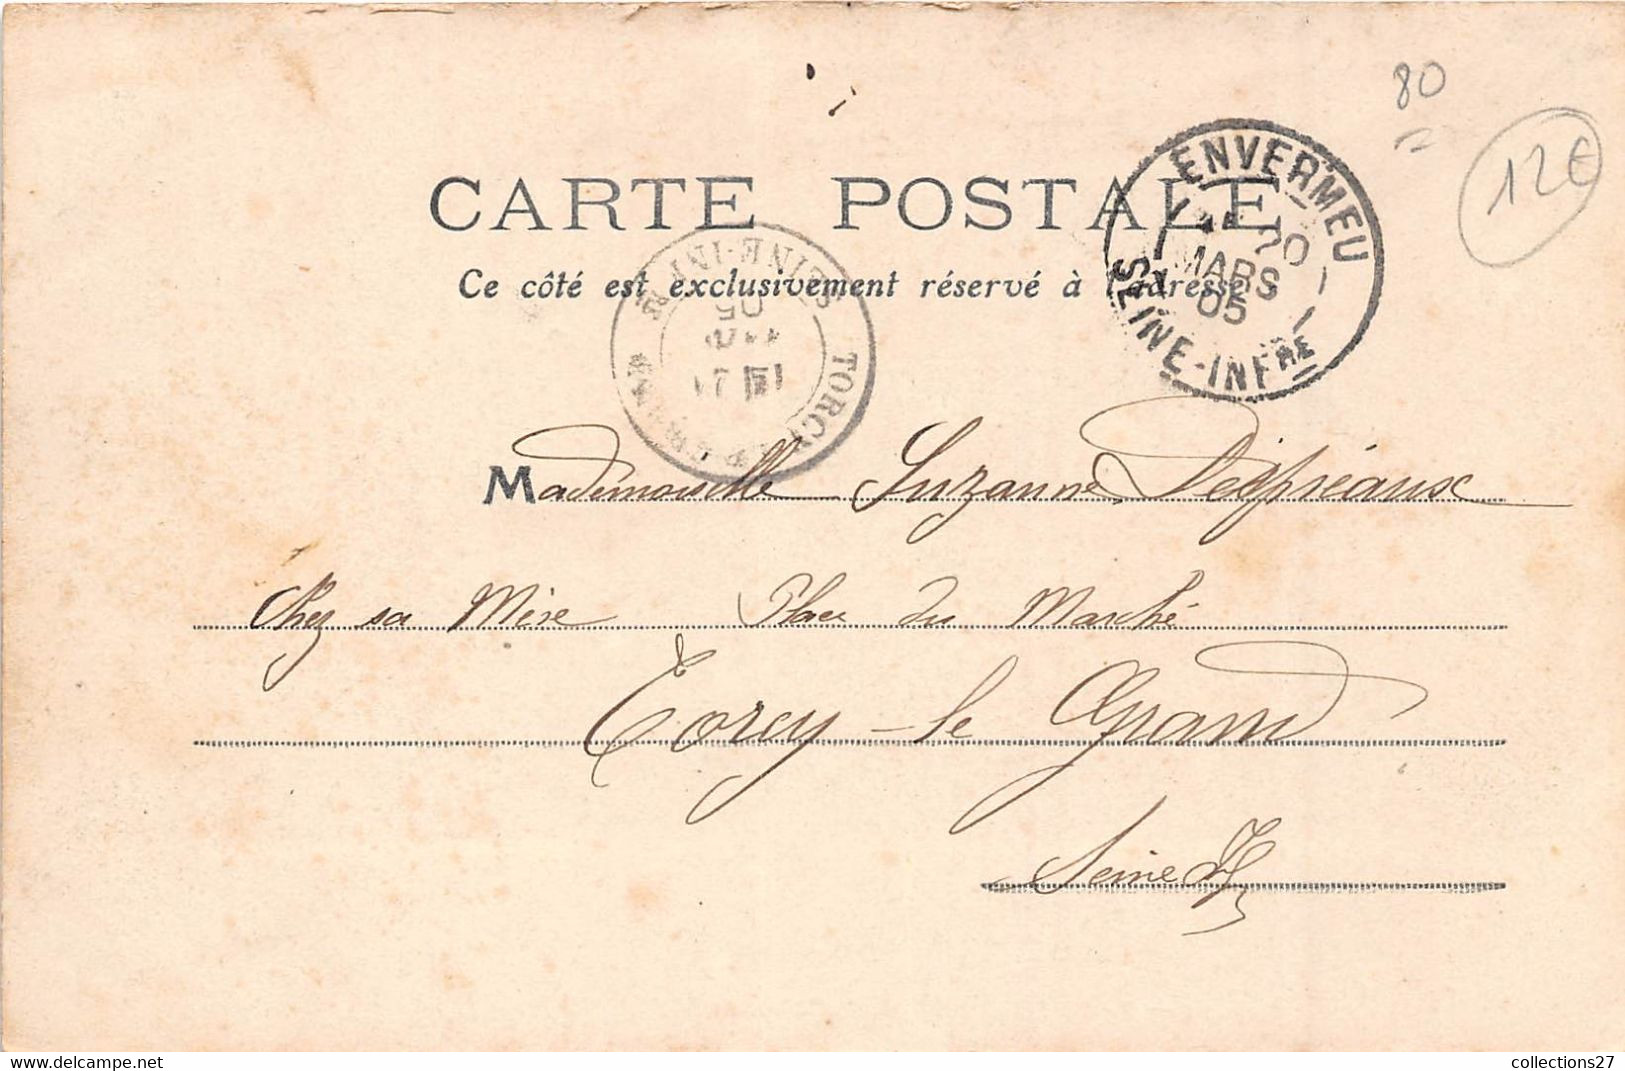 80
12€
CARTE POSTALE
Ce côté est exclusivement réservé à l'adresse
ENVERMEU
20
MARS
05
SEINE-INFRE
TORCY
SEINE-INFRE
21
05
Mademoiselle Suzanne Despréaux
Chez sa Mère Place du Marché
Torcy-le Grand
Seine Infre
collections27